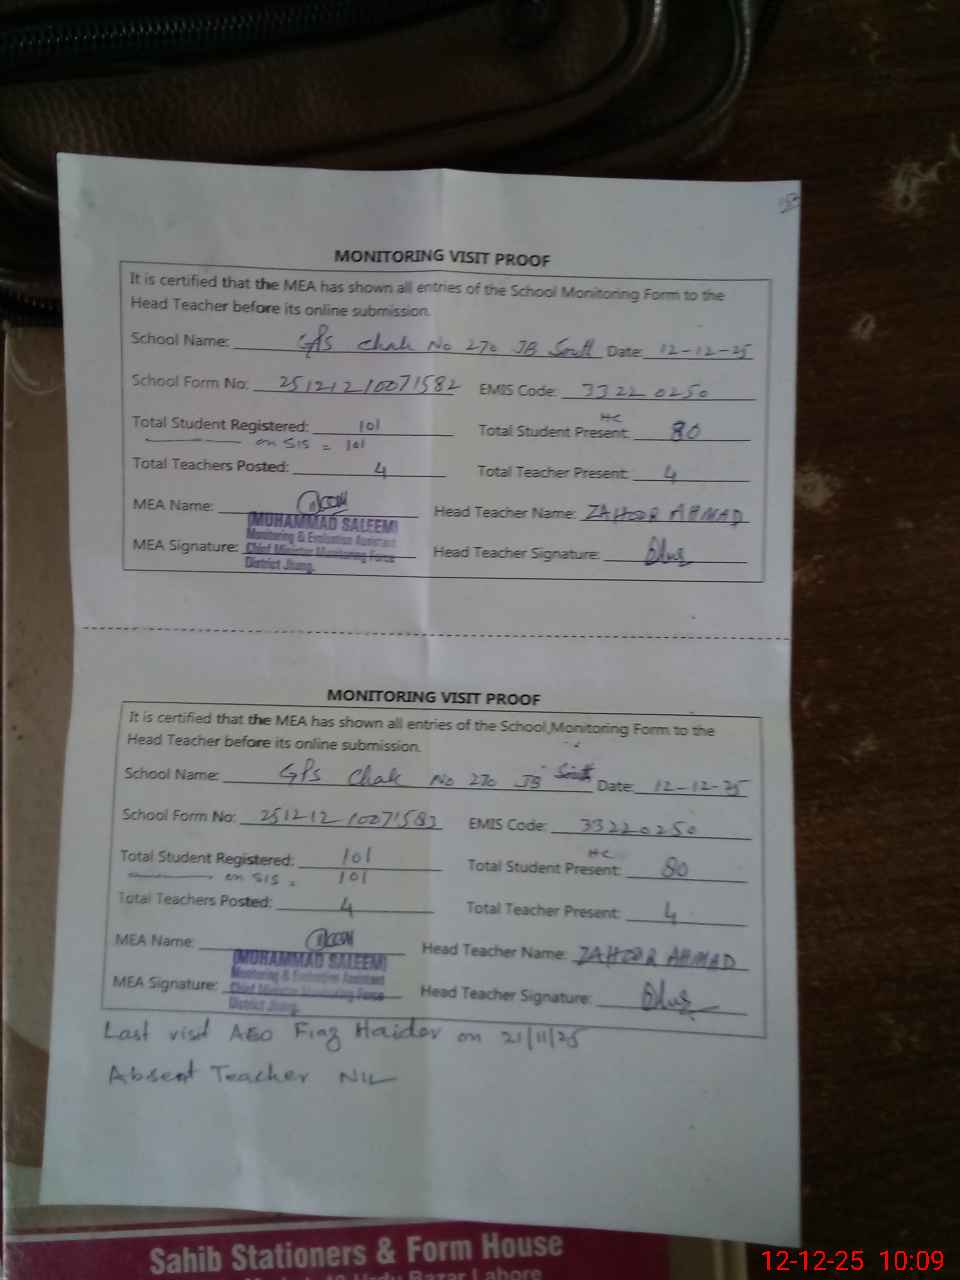 MONITORING VISIT PROOF
It is certified that the MEA has shown all entries of the School Monitoring Form to the
Head Teacher before its online submission.
School Name: GPS Chak No 270 JB South Date: 12-12-25
School Form No: 25121210071582 EMIS Code: 33220250
HC
Total Student Registered: 101 Total Student Present: 80
on SIS = 101
Total Teachers Posted: 4 Total Teacher Present: 4
MEA Name: Head Teacher Name: ZAHOOR AHMAD
(MUHAMMAD SALEEM)
Monitoring & Evaluation Assistant
MEA Signature: Chief Minister Monitoring Force Head Teacher Signature:
District Jhang.
MONITORING VISIT PROOF
It is certified that the MEA has shown all entries of the School Monitoring Form to the
Head Teacher before its online submission.
School Name: GPS Chak No 270 JB South Date: 12-12-25
School Form No: 25121210071582 EMIS Code: 33220250
HC
Total Student Registered: 101 Total Student Present: 80
on SIS = 101
Total Teachers Posted: 4 Total Teacher Present: 4
MEA Name: Head Teacher Name: ZAHOOR AHMAD
(MUHAMMAD SALEEM)
Monitoring & Evaluation Assistant
MEA Signature: Chief Minister Monitoring Force Head Teacher Signature:
District Jhang.
Last visit AEO Fiaz Haider on 21/11/25
Absent Teacher NIL
Sahib Stationers & Form House
Urdu Bazar Lahore
12-12-25 10:09